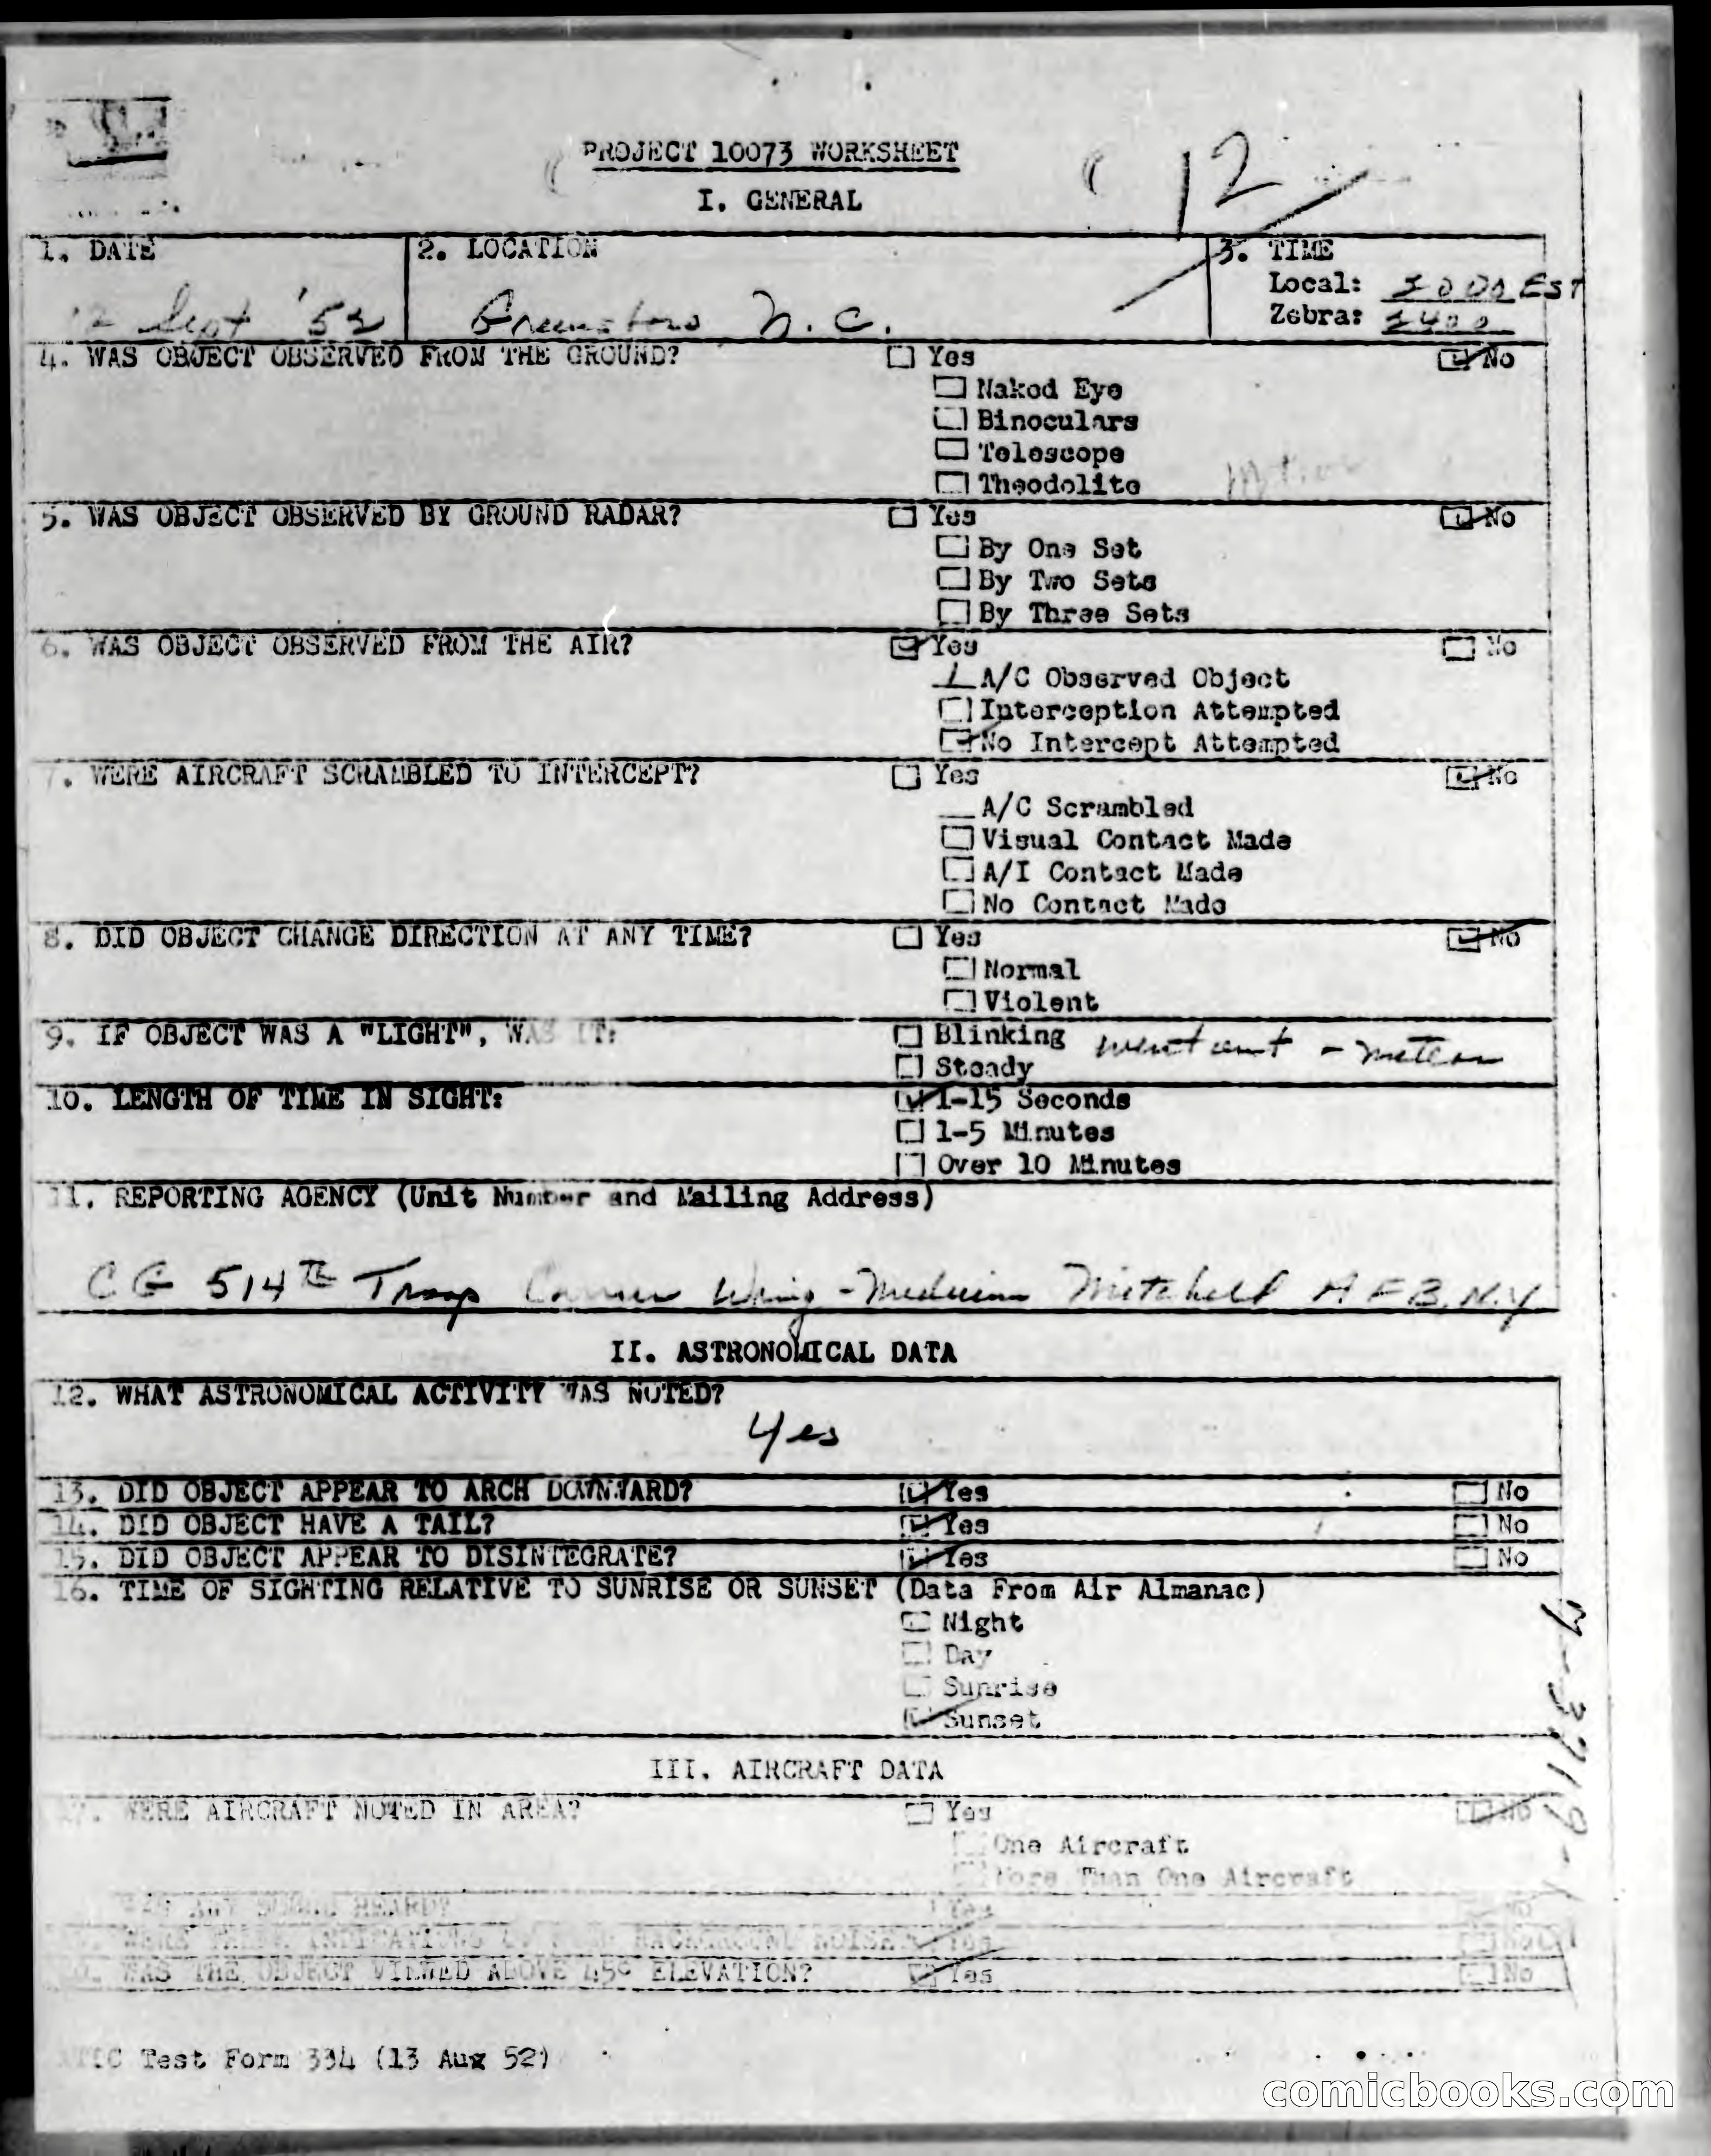 PROJECT 10073 WORKSHEET
12
I. GENERAL
1. DATE
2. LOCATION
3. TIME
Local: 2000 EST
Zebra: 2400
12 Sept '52
Greensboro N.C.
4. WAS OBJECT OBSERVED FROM THE GROUND?
Yes
No
Naked Eye
Binoculars
Telescope
Theodolite
5. WAS OBJECT OBSERVED BY GROUND RADAR?
Yes
No
By One Set
By Two Sets
By Three Sets
6. WAS OBJECT OBSERVED FROM THE AIR?
Yes
No
A/C Observed Object
Interception Attempted
No Intercept Attempted
7. WERE AIRCRAFT SCRAMBLED TO INTERCEPT?
Yes
No
A/C Scrambled
Visual Contact Made
A/I Contact Made
No Contact Made
8. DID OBJECT CHANGE DIRECTION AT ANY TIME?
Yes
No
Normal
Violent
9. IF OBJECT WAS A "LIGHT", WAS IT:
Blinking
went out - meteor
Steady
10. LENGTH OF TIME IN SIGHT:
1-15 Seconds
1-5 Minutes
Over 10 Minutes
11. REPORTING AGENCY (Unit Number and Mailing Address)
CG 514TH Troop Carrier Wing - Medium Mitchell AFB, N.Y
II. ASTRONOMICAL DATA
12. WHAT ASTRONOMICAL ACTIVITY WAS NOTED?
Yes
13. DID OBJECT APPEAR TO ARCH DOWNWARD?
Yes
No
14. DID OBJECT HAVE A TAIL?
Yes
No
15. DID OBJECT APPEAR TO DISINTEGRATE?
Yes
No
16. TIME OF SIGHTING RELATIVE TO SUNRISE OR SUNSET (Data From Air Almanac)
Night
Day
Sunrise
Sunset
III. AIRCRAFT DATA
17. WERE AIRCRAFT NOTED IN AREA?
Yes
No
One Aircraft
More Than One Aircraft
WAS ANY SOUND HEARD?
Yes
No
WERE THERE INDICATIONS BACKGROUND NOISE
Yes
No
WAS THE OBJECT VIEWED ABOVE 45° ELEVATION?
Yes
No
ATIC Test Form 334 (13 Aug 52)
comicbooks.com